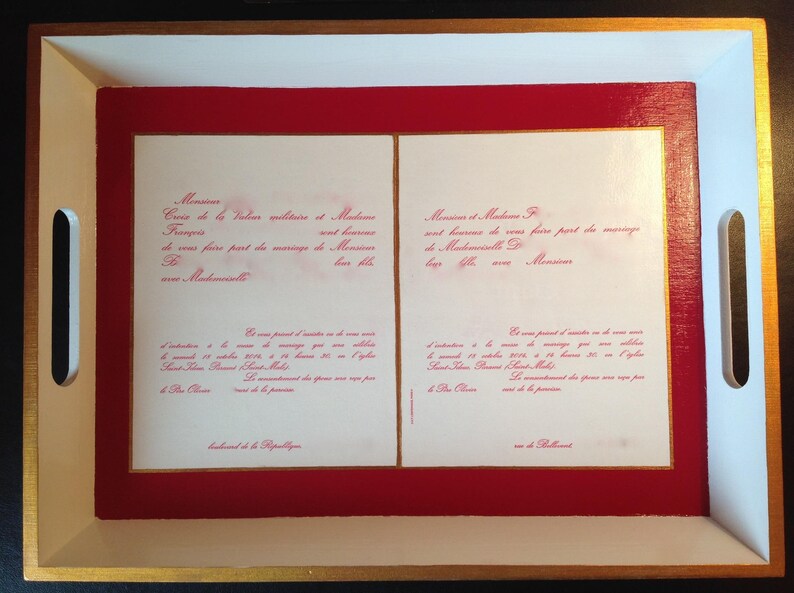 Monsieur
Croix de la Valeur militaire et Madame
François sont heureux
de vous faire part du mariage de Monsieur
leur fils,
avec Mademoiselle
Et vous prient d'assister ou de vous unir
d'intention à la messe de mariage qui sera célébrée
le samedi 18 octobre 2014, à 14 heures 30, en l'église
Saint-Ideuc, Paramé (Saint-Malo).
Le consentement des époux sera reçu par
le Père Olivier curé de la paroisse.
boulevard de la République.
Monsieur et Madame F
sont heureux de vous faire part du mariage
de Mademoiselle D
leur fille, avec Monsieur
Et vous prient d'assister ou de vous unir
d'intention à la messe de mariage qui sera célébrée
le samedi 18 octobre 2014, à 14 heures 30, en l'église
Saint-Ideuc, Paramé (Saint-Malo).
Le consentement des époux sera reçu par
le Père Olivier curé de la paroisse.
rue de Bellevent.